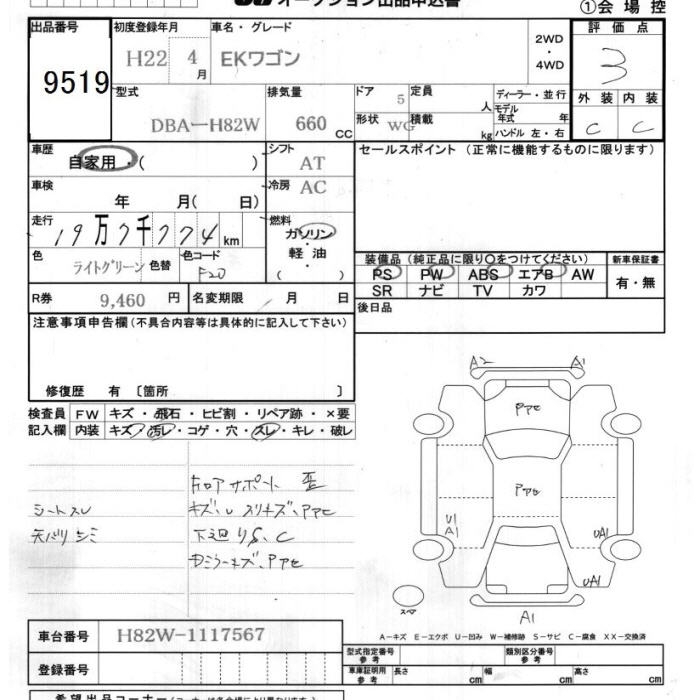 オークション出品申込書
①会場控
出品番号 9519
初度登録年月 H22 4月
車名・グレード EKワゴン
2WD・4WD
評価点 3
外装 C 内装 C
型式 DBA-H82W
排気量 660 CC
ドア 5
定員 人
形状 WG
積載 kg
ディーラー・並行
モデル年式 年
ハンドル 左・右
車歴 自家用・( )
シフト AT
セールスポイント (正常に機能するものに限ります)
車検 年 月( 日)
冷房 AC
走行 19万7千774km
燃料 ガソリン・軽油 ( )
色 ライトグリーン 色替
色コード F20
装備品 (純正品に限り○をつけてください)
新車保証書
PS PW ABS エアB AW
有・無
SR ナビ TV カワ
R券 9,460円
名変期限 月 日
後日品
注意事項申告欄 (不具合内容等は具体的に記入して下さい)
修復歴 有 〔箇所 〕
検査員 FW キズ・飛石・ヒビ割・リペア跡・×要
記入欄 内装 キズ・汚レ・コゲ・穴・スレ・キレ・破レ
A2 A1
PPC
ドロアサポート 歪
PPC
シートスレ
キズ、U スリキズ、PPC
天バリシミ
下廻りS、C
U1
A1
UA1
Dミラーキズ、PPC
UA1
スペア
A1
A-キズ E-エクボ U-凹み W-補修跡 S-サビ C-腐食 XX-交換済
車台番号 H82W-1117567
型式指定番号 参考
類別区分番号 参考
登録番号
車庫証明用 参考 長さ cm 幅 cm 高さ cm
希望出品コーナー